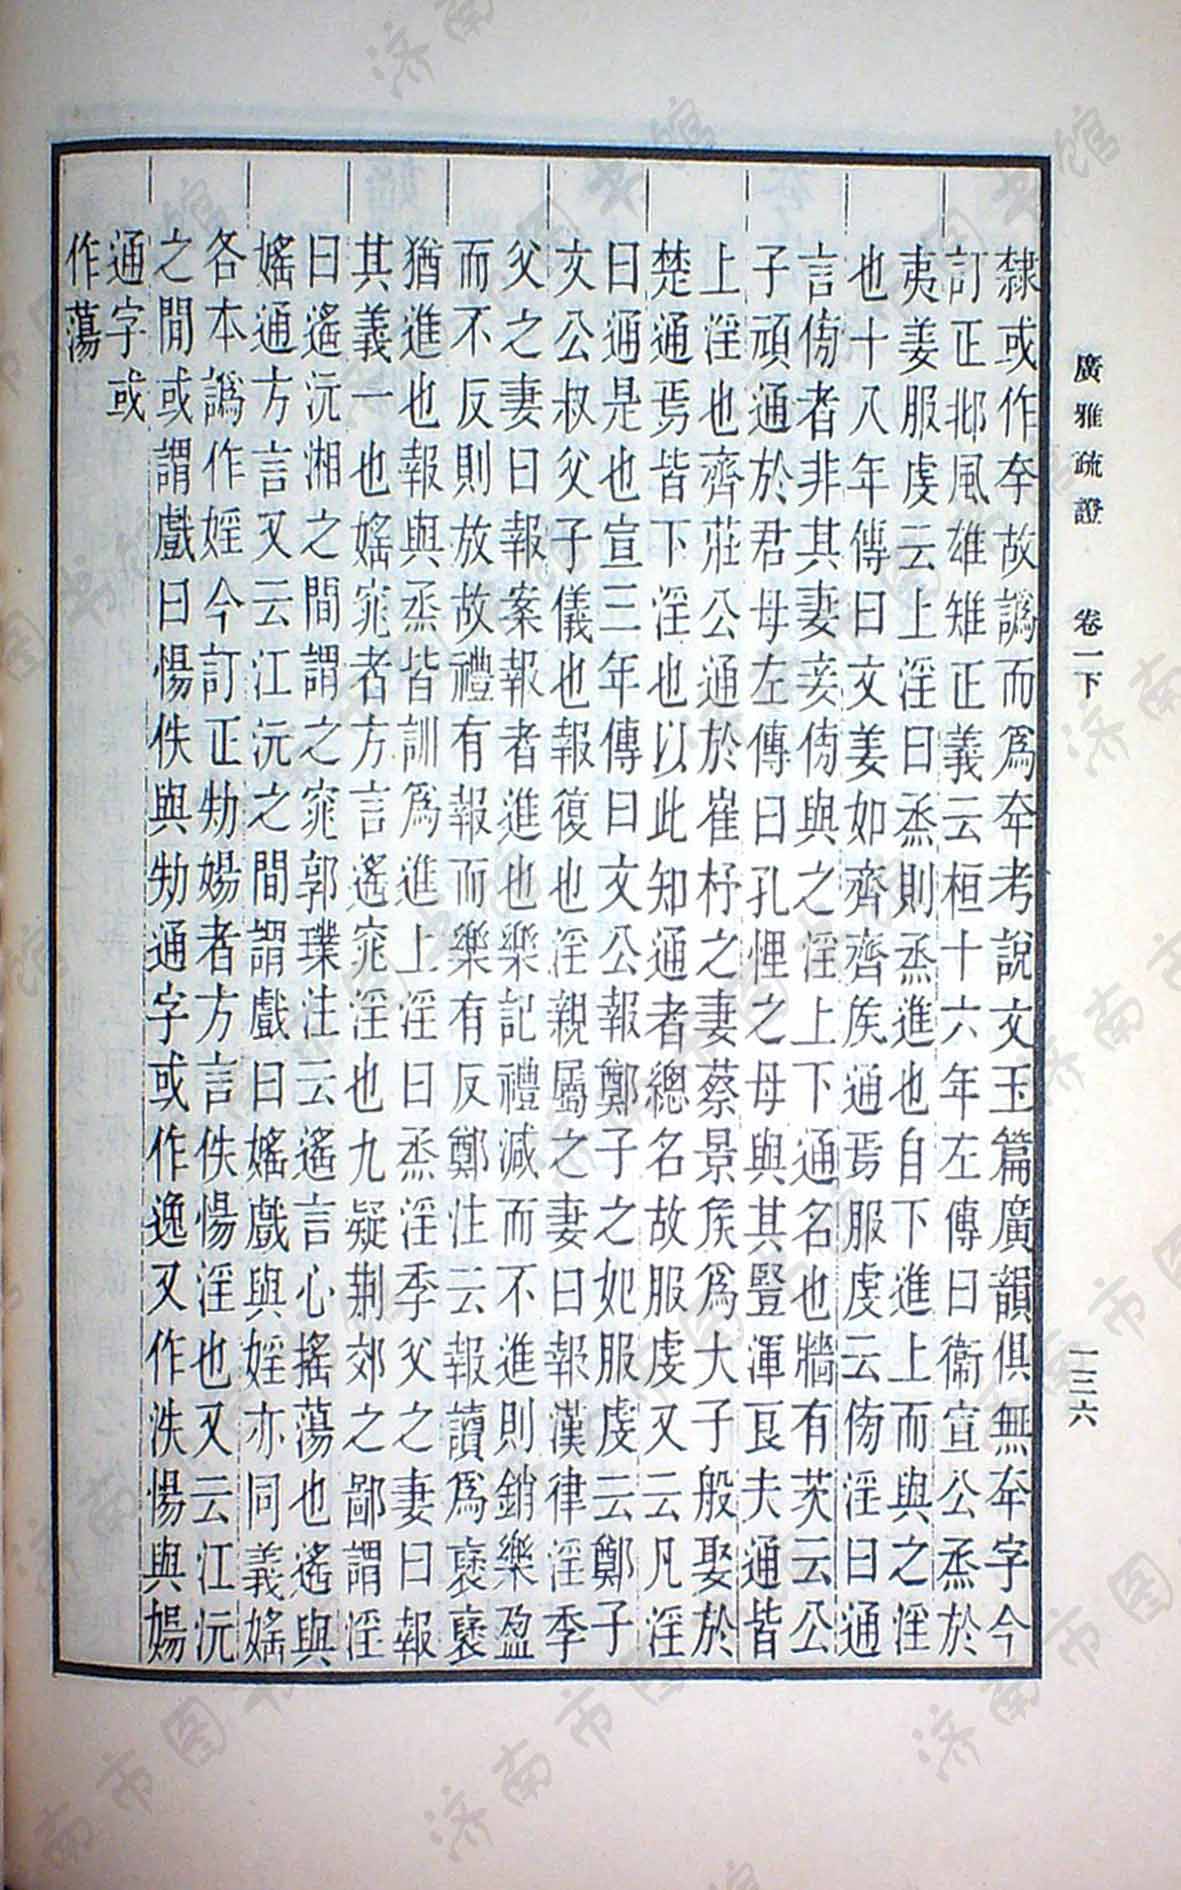 廣雅疏證 卷一下 一三六
隸或作故譌而爲考說文玉篇廣韻俱無字今
訂正邶風雄雉正義云桓十六年左傳曰衞宣公烝於
夷姜服虔云上淫曰烝則烝進也自下進上而與之淫
也十八年傳曰文姜如齊齊矦通焉服虔云傍淫曰通
言傍者非其妻妾傍與之淫上下通名也牆有茨云公
子頑通於君母左傳曰孔悝之母與其豎渾良夫通皆
上淫也齊莊公通於崔杼之妻蔡景矦爲大子般娶於
楚通焉皆下淫也以此知通者總名故服虔又云凡淫
曰通是也宣三年傳曰文公報鄭子之妃服虔云鄭子
文公叔父子儀也報復也淫親屬之妻曰報漢律淫季
父之妻曰報案報者進也樂記禮減而不進則銷樂盈
而不反則放故禮有報而樂有反鄭注云報讀爲襃襃
猶進也報與烝皆訓爲進上淫曰烝淫季父之妻曰報
其義一也媱窕者方言遙窕淫也九疑荆郊之鄙謂淫
曰遙沅湘之閒謂之窕郭璞注云遙言心搖蕩也遙與
媱通方言又云江沅之閒謂戲曰媱戲與婬亦同義媱
各本譌作婬今訂正劮婸者方言佚惕淫也又云江沅
之閒或謂戲曰惕佚與劮通字或作逸又作泆惕與婸
通字或
作蕩